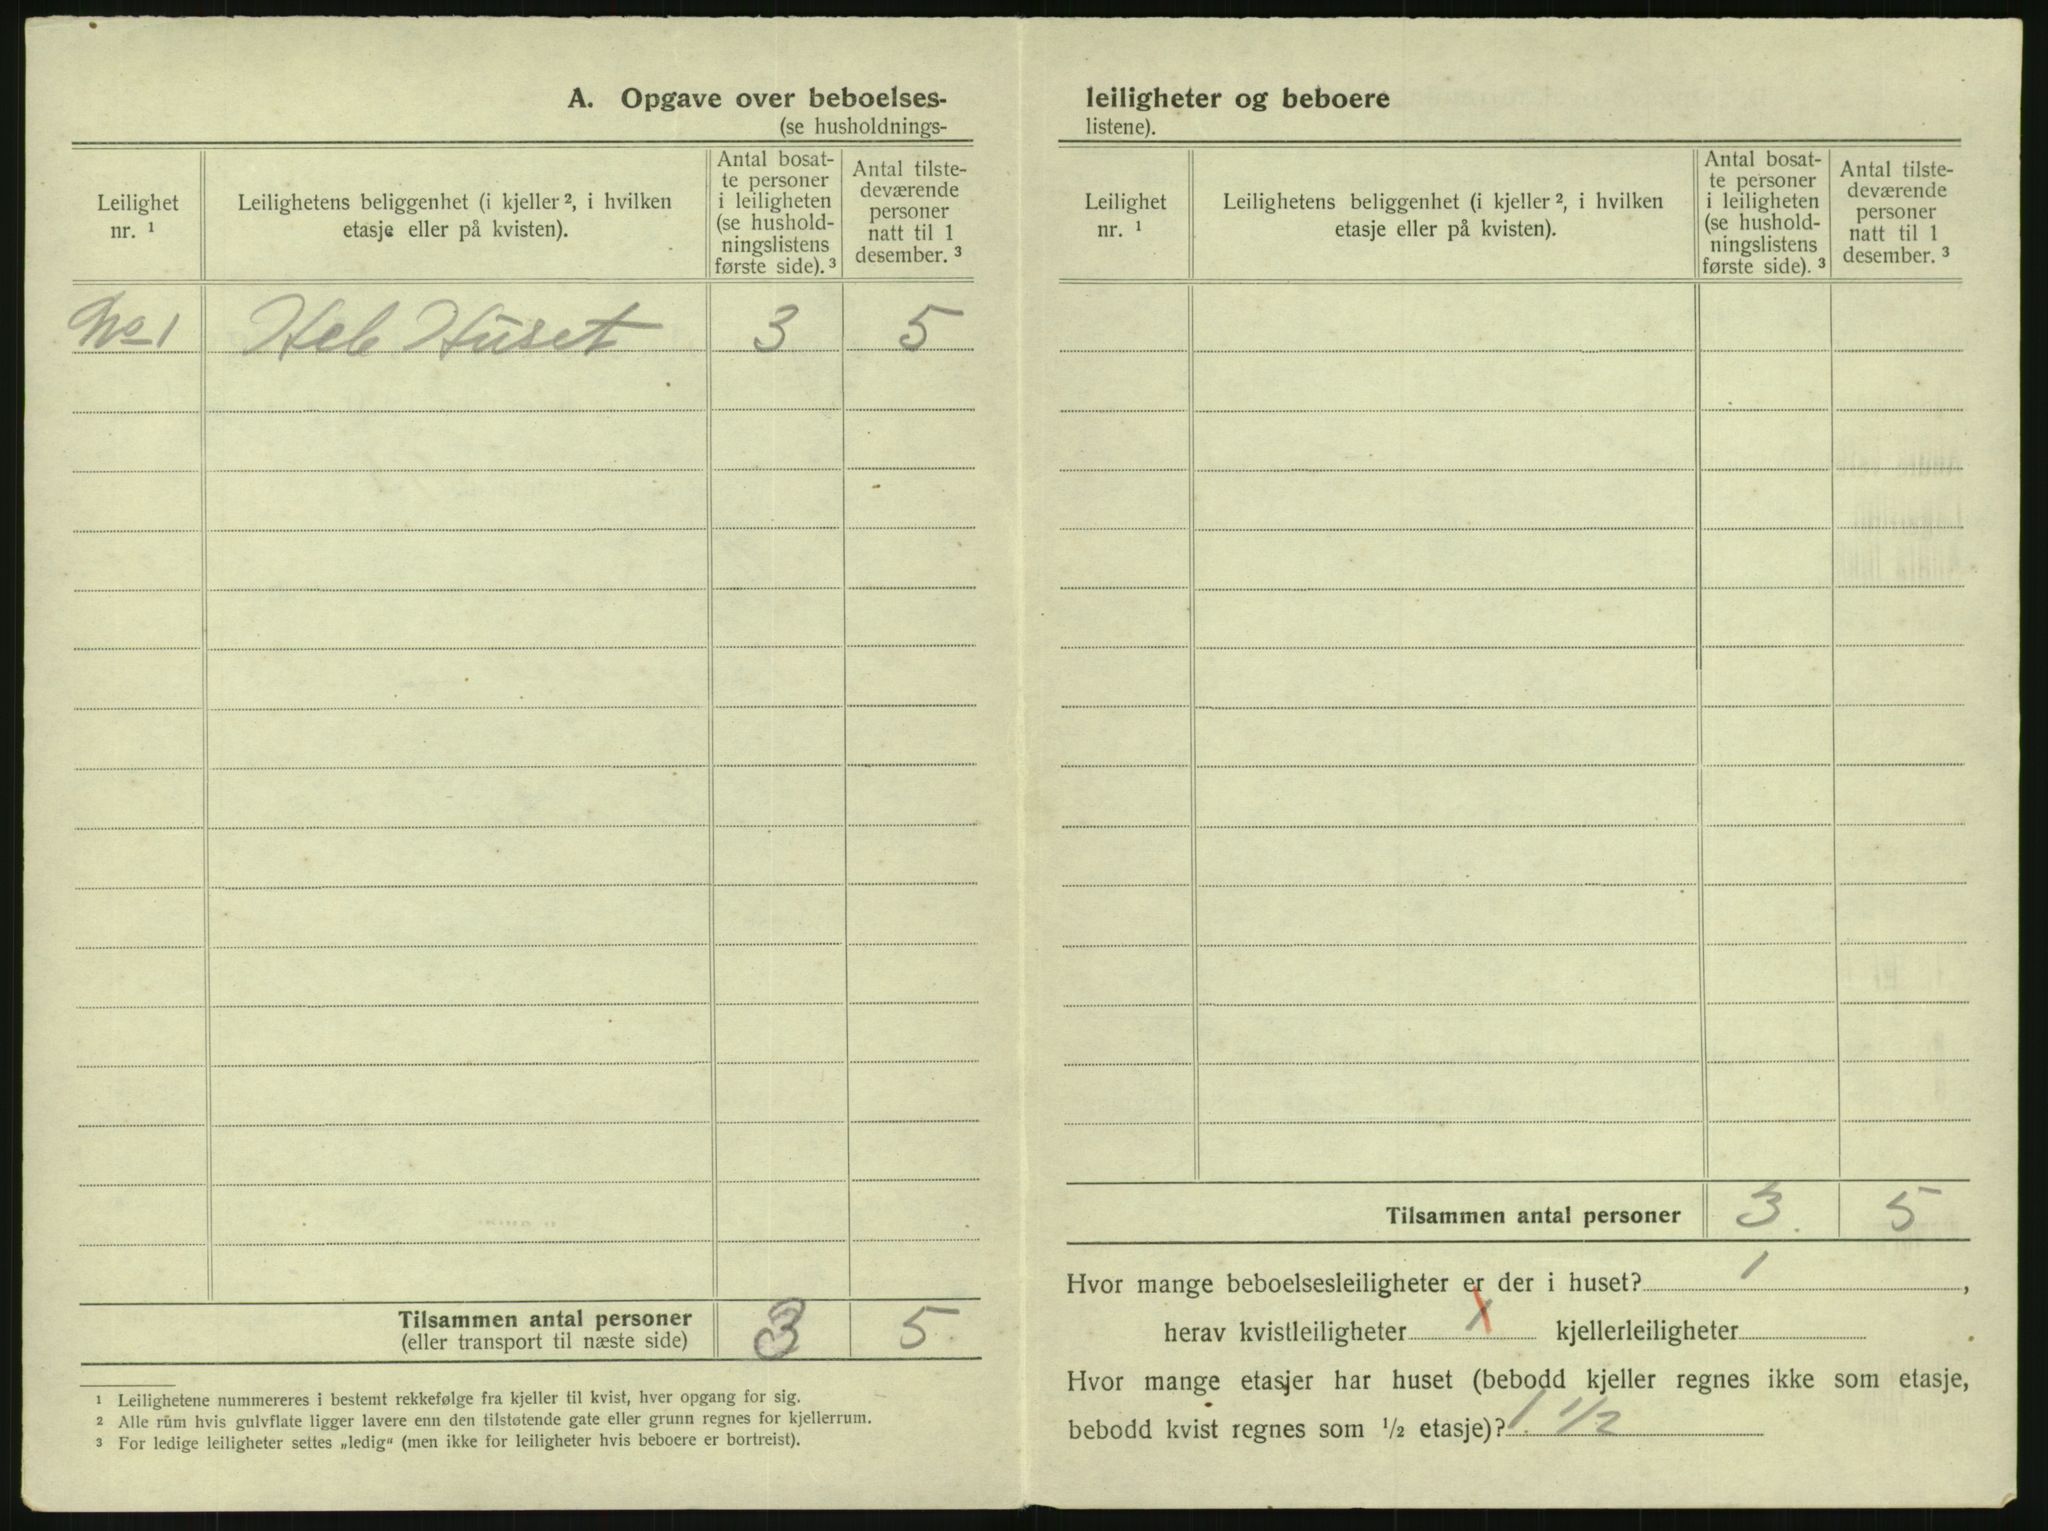 A. Opgave over beboelses-
(se husholdnings-
Leilighet
nr. ¹
Leilighetens beliggenhet (i kjeller ², i hvilken
etasje eller på kvisten).
Antal bosat-
te personer
i leiligheten
(se hushold-
ningslistens
første side). ³
Antal tilste-
deværende
personer
natt til 1
desember. ³
No 1 Hele Huset 3 5
Tilsammen antal personer 3 5
(eller transport til næste side)
¹ Leilighetene nummereres i bestemt rekkefølge fra kjeller til kvist, hver opgang for sig.
² Alle rüm hvis gulvflate ligger lavere enn den tilstøtende gate eller grunn regnes for kjellerrum.
³ For ledige leiligheter settes „ledig“ (men ikke for leiligheter hvis beboere er bortreist).
leiligheter og beboere
listene).
Leilighet
nr. ¹
Leilighetens beliggenhet (i kjeller ², i hvilken
etasje eller på kvisten).
Antal bosat-
te personer
i leiligheten
(se hushold-
ningslistens
første side). ³
Antal tilste-
deværende
personer
natt til 1
desember. ³
Tilsammen antal personer 3. 5
Hvor mange beboelsesleiligheter er der i huset? 1,
herav kvistleiligheter 1 kjellerleiligheter
Hvor mange etasjer har huset (bebodd kjeller regnes ikke som etasje,
bebodd kvist regnes som ½ etasje)? 1. 1/2